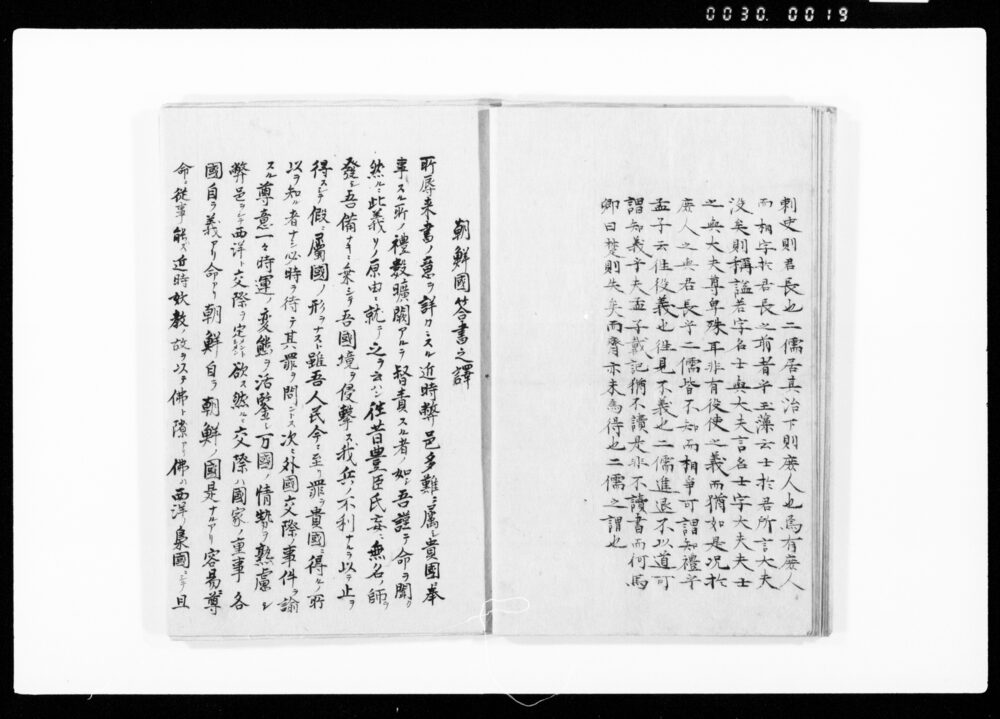 0030. 0019
刺史則君長也二儒居其治下則庶人也焉有庶人
而相字於君長之前者乎玉藻云士於君所言大夫
没矣則稱諡若字名士與大夫言名士字大夫夫士
之與大夫尊卑殊耳非有役使之義而猶如是况於
庶人之與君長乎二儒皆不知而相爭可謂知禮乎
孟子云往役義也往見不義也二儒進退不以道可
謂知義乎夫孟子戴記猶不讀是非不讀書而何馬
卿曰楚則失矣而齊亦未爲得也二儒之謂也
朝鮮國答書之譯
所辱来書ノ意ヲ詳カニスル近時弊邑多難ニ属シ貴國ニ奉
事スル所ノ禮数曠闕アルヲ督責スル者ノ如シ吾謹テ命ヲ聞ク
然ルニ此義ノ原由ニ就テ之ヲ云ハン往昔豊臣氏妄ニ無名ノ師ヲ
發シ吾備ナキニ乘シテ吾國境ヲ侵撃ス我兵ノ不利ナルヲ以テ止ヲ
得スシテ假ニ屬國ノ形ヲナスト雖吾人民今ニ至リ罪ヲ貴國ニ得ル所
以ヲ知ル者ナシ必時ヲ待テ其罪ヲ問ントス次ニ外國交際事件ヲ諭
スル尊意一々時運ノ変態ヲ活鑒シ万國ノ情勢ヲ熟慮シ
弊邑ヲシテ西洋ト交際ヲ定メント欲ス然ルニ交際ハ國家ノ重事各
國自ラ義アリ命アリ朝鮮自ラ朝鮮ノ國是ナルアリ容易尊
命ニ從事能ス近時妖教ノ故ヲ以テ佛ト隙アリ佛ハ西洋ノ梟國ニシテ且